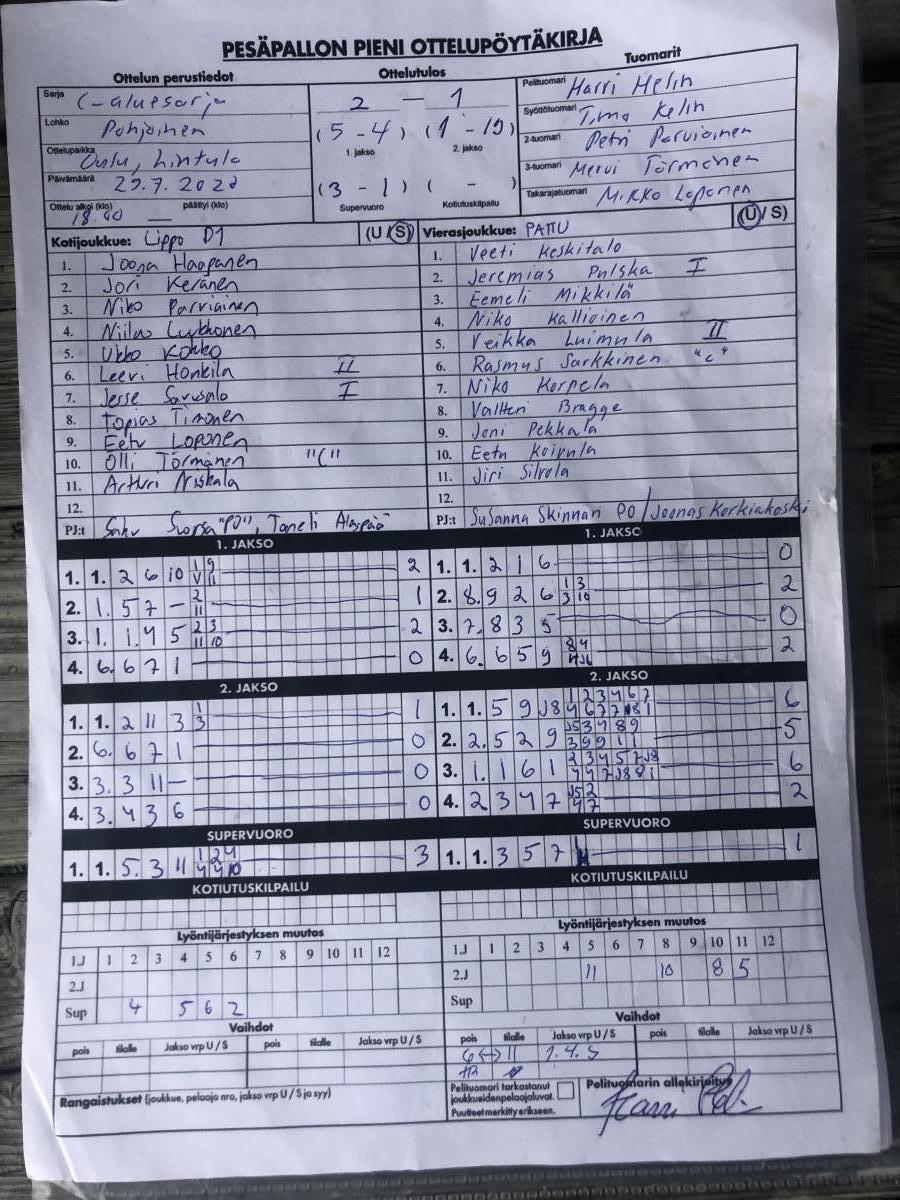 PESÄPALLON PIENI OTTELUPÖYTÄKIRJA
Ottelun perustiedot Ottelutulos Tuomarit
Sarja C-aluesarja
Lohko Pohjoinen
Ottelupaikka Oulu, Lintula
Päivämäärä
Ottelu alkoi (klo) 18.00 — päättyi (klo)
2 — 1
(5 - 4) (1 - 19)
1. jakso 2. jakso
(3 - 1) ( - )
Supervuoro Kotiutuskilpailu
Pelituomari Harri Helin
Syöttötuomari Timo Kelin
2-tuomari Petri Parviainen
3-tuomari Mervi Törmänen
Takarajatuomari Mikko Loponen
Kotijoukkue: Lippo D1 (U / S)
1. Joona Haapanen
2. Jori Keränen
3. Niko Parviainen
4. Niilas Lyykhonen
5. Ukko Kokko
6. Leevi Honkila II
7. Jesse I
8. Topias Timonen
9. Eetu Loponen
10. Olli Törmänen "C"
11. Artturi Niskala
12.
PJ:t Saku Suorsa "PO", Taneli Alaspää
Vierasjoukkue: PATTU (U / S)
1. Veeti Keskitalo
2. Jeremias Pulska I
3. Eemeli Mikkilä
4. Niko Kallioinen
5. Veikka Luimula II
6. Rasmus Sarkkinen "C"
7. Niko Korpela
8. Valtteri Bragge
9. Joni Pekkala
10. Eetu Koivula
11. Jiri Silvola
12.
PJ:t Susanna Skinnari PO / Joonas Korkiakoski
1. JAKSO
1. 1. 2 6 10 2
2. 1. 5 7 - 2 11 1
3. 1. 1. 4 5 2 3 11 10 2
4. 6. 6 7 1 0
1. JAKSO
1. 1. 2 1 6 0
2. 8. 9 2 6 1 3 3 10 2
3. 7. 8 3 5 0
4. 6. 6 5 9 2
2. JAKSO
1. 1. 2 11 3 1 3 1
2. 6. 6 7 1 0
3. 3. 3 11 - 0
4. 3. 4 3 6 0
2. JAKSO
1. 1. 5 9 J8 1 2 3 4 6 7 6
2. 2. 5 2 9 J5 3 4 8 9 5
3. 1. 1 6 1 2 3 4 5 7 J8 6
4. 2 3 4 7 J5 2 4 7 2
SUPERVUORO
1. 1. 5. 3 11 1 2 4 4 4 10 3
SUPERVUORO
1. 1. 3 5 7 1
KOTIUTUSKILPAILU
KOTIUTUSKILPAILU
Lyöntijärjestyksen muutos
1.J 1 2 3 4 5 6 7 8 9 10 11 12
2.J
Sup 4 5 6 2
Lyöntijärjestyksen muutos
1.J 1 2 3 4 5 6 7 8 9 10 11 12
2.J 11 10 8 5
Sup
Vaihdot
pois tilalle Jakso vrp U / S pois tilalle Jakso vrp U / S
Vaihdot
pois tilalle Jakso vrp U / S pois tilalle Jakso vrp U / S
6 <-> 11 1.4.S
Rangaistukset (joukkue, pelaaja nro, jakso vrp U / S ja syy)
Pelituomari tarkastanut
joukkueidenpelaajaluvat.
Puutteet merkitty erikseen.
Pelituomarin allekirjoitus